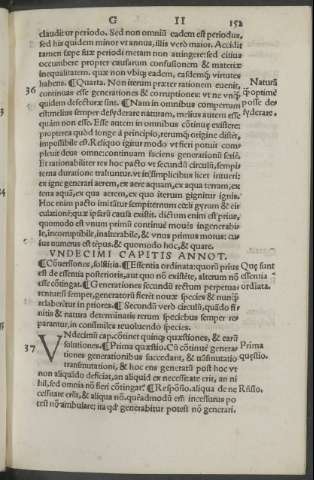 G II 152
claudit̃ur periodo. Sed non omniũ eadem est periodus,
sed his quidem minor vt annus, illis verò maior. Accidit
tamen sæpe suæ periodi metam non attingere: sed citius
occumbere propter causarum confusionem & materiæ
inequalitatem. quæ non vbiq; eadem, easdemq́; virtutes
habens. ¶ Quarta. Non iterum præter rationem euenit,
continuas esse generationes & corruptiones: vt ne vnq̃
quidem defecturæ sint. ¶ Nam in omnibus comperitum
est melius semper desyderare naturam, melius autem esse
quàm non esse. Esse autem in omnibus cõtinuè existere:
propterea quòd longe à principio, rerumq́; origine distãt,
impossibile est. Reliquo igitur modo vt fieri potuit com
pleuit deus omne: continuam faciens generationũ seriẽ.
Et rationabiliter res hoc pacto vt secundũ circulũ, sempi
terna duratione traduntur. vt in simplicibus licet intueri:
ex igne generari aerem, ex aere aquam, ex aqua terram, ex
terra aquã, ex qua aerem, ex quo iterum gignitur ignis.
Hoc enim pacto imitãtur sempiternum cœli gyrum & cir
culationẽ: quæ ipsarũ causa existit. dictum enim est prius,
quomodo est vnum primũ continuè mouẽs ingenerabi-
le, incorruptibile, inalterabile, & vnus primus motus: cu
ius numerus est tẽpus. & quomodo hoc, & quare.
VNDECIMI CAPITIS ANNOT.
¶ Cõuersiones, solstitia. ¶ Essentia ordinata: quorũ prius
est de essentia posterioris, aut quo nõ existẽte, alterum nõ
esse cõtingat. ¶ Generationes secundũ rectum perpetua:
reuntur semper, generatorũ fierẽt nouæ species & nunq̃
relaberẽtur in priora. ¶ Secundũ verò circulũ, quãdo fi-
nitis & natura determinatis rerum speciebus semper re-
parantur, in consimiles reuoluendo species.
VNdecimũ cap. cõtinet quinq; quæstiones, & earũ
solutiones. ¶ Prima quæstio. Cũ cõtinuè genera-
tiones generationibus succedant, & trãsmutatio
transmutationi, & hoc ens generatũ post hoc vt
non aliquãdo deficiat, an aliquid ex necessitate erit, an ni
hil, sed omnia nõ fieri cõtingat? ¶ Respõsio. aliqua de ne
cessitate erũt, & aliqua nõ. quẽadmodũ em̃ incessurus po
test nõ ambulare; ita qđ generabitur potest nõ generari.
36
37
Naturã
q̃ optimè
posse de-
syderare.
Quę sunt
essentia
ordiata.
Prima
quęstio.
Rñsio.